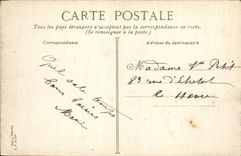 CARTE POSTALE
Tous les pays étrangers n'acceptent pas la correspondance au recto.
(Se renseigner à la poste.)
Correspondance
Adresse du destinataire
Quel sale temps
Bons baisers
Marie
Madame Vve Petit
83 rue d'
le Havre